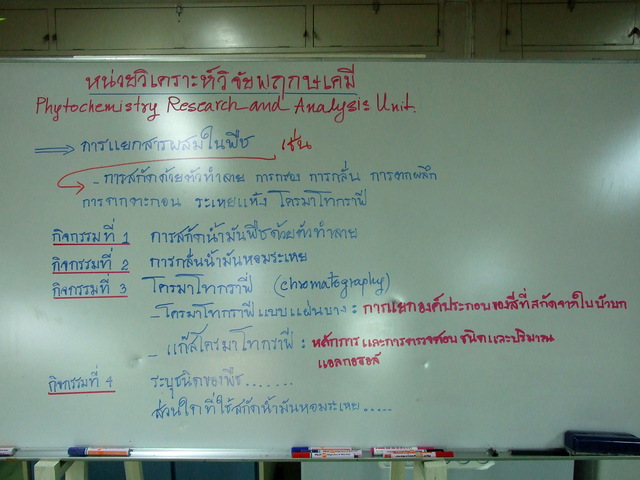 หน่วยวิเคราะห์วิจัยพฤกษเคมี
Phytochemistry Research and Analysis Unit.
⟹ การแยกสารผสมในพืช เช่น
- การสกัดด้วยตัวทำลาย การกรอง การกลั่น การตกผลึก
การตกตะกอน ระเหยแห้ง โครมาโทกราฟี
กิจกรรมที่ 1 การสกัดน้ำมันพืชด้วยตัวทำลาย
กิจกรรมที่ 2 การกลั่นน้ำมันหอมระเหย
กิจกรรมที่ 3 โครมาโทกราฟี (chromatography)
- โครมาโทกราฟีแบบแผ่นบาง : การแยกองค์ประกอบของสีที่สกัดจากใบบัวบก
- แก๊สโครมาโทกราฟี : หลักการและการตรวจสอบชนิดและปริมาณ
แอลกอฮอล์
กิจกรรมที่ 4 ระบุชนิดของพืช.......
ส่วนใดที่ใช้สกัดน้ำมันหอมระเหย.....